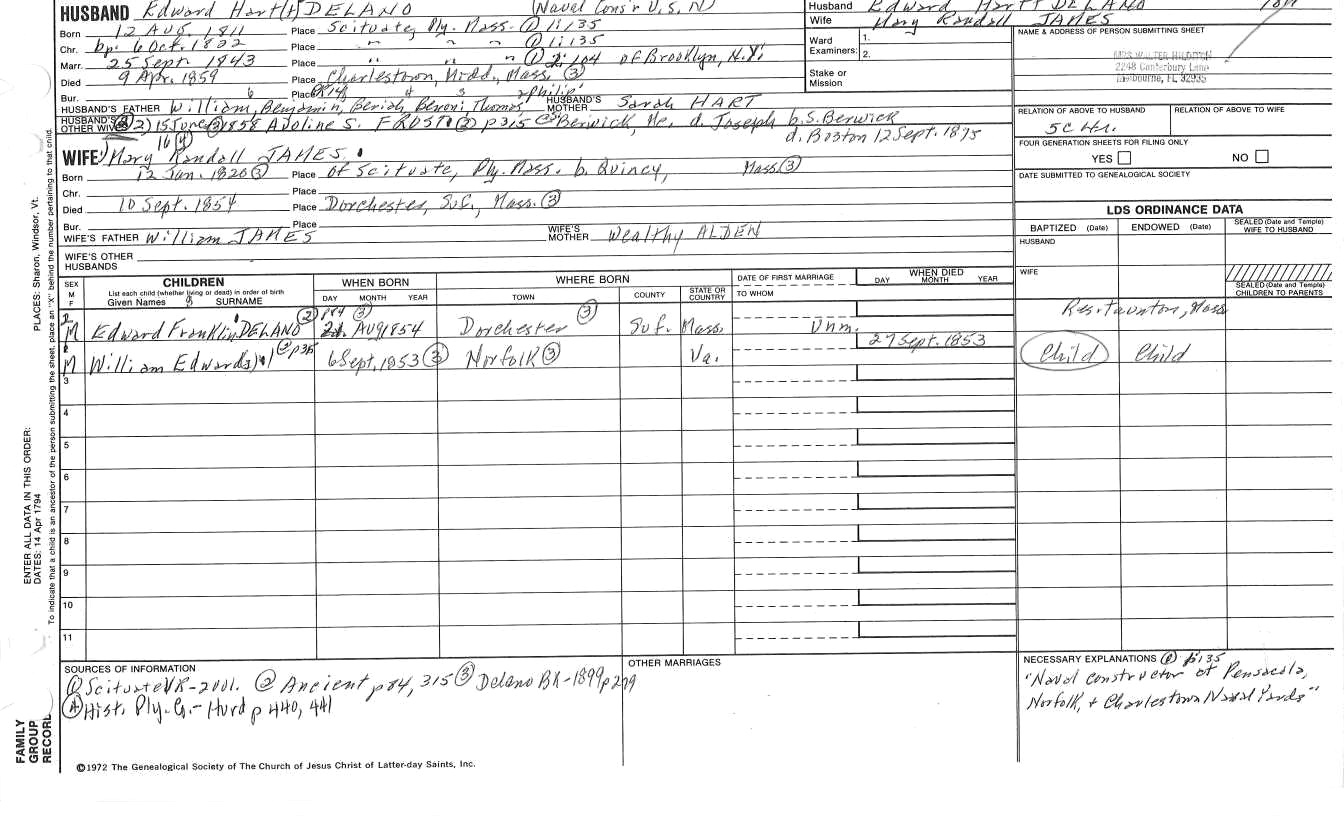 HUSBAND Edward Hart(t) DELANO (Naval Cons'r U.S.N)
Born 12 AUG. 1811 Place Scituate, Ply. Mass. ① 1:135
Chr. bp. 6 Oct. 1822 Place " " " ① 1:135
Marr. 25 Sept. 1843 Place " " " ① 2:104 of Brooklyn, N.Y.
Died 9 Apr. 1859 Place Charlestown, Midd., Mass. ③
Bur. Place
HUSBAND'S FATHER William, Benjamin, Beriah, Benoni, Thomas, Philip HUSBAND'S MOTHER Sarah HART
HUSBAND'S OTHER WIVES 2) 15 June ③ 1858 Adoline S. FROST ② p315 Berwick, Me, d. Joseph b. S. Berwick
d. Boston 12 Sept. 1895
WIFE Mary Randall JAMES
Born 12 Jan. 1820 ③ Place of Scituate, Ply. Mass. b. Quincy, Mass. ③
Chr. Place
Died 10 Sept. 1854 Place Dorchester, Suf., Mass. ③
Bur. Place
WIFE'S FATHER William JAMES WIFE'S MOTHER Wealthy ALDEN
WIFE'S OTHER HUSBANDS
Husband Edward HARTT DELANO
Wife Mary Randall JAMES
Ward Examiners: 1.
2.
Stake or Mission
NAME & ADDRESS OF PERSON SUBMITTING SHEET
2248 Canterbury Lane
Melbourne, FL 32935
RELATION OF ABOVE TO HUSBAND RELATION OF ABOVE TO WIFE
FOUR GENERATION SHEETS FOR FILING ONLY
YES NO
DATE SUBMITTED TO GENEALOGICAL SOCIETY
LDS ORDINANCE DATA
BAPTIZED (Date) ENDOWED (Date) SEALED (Date and Temple) WIFE TO HUSBAND
HUSBAND
WIFE
SEALED (Date and Temple) CHILDREN TO PARENTS
SEX M F
CHILDREN
List each child (whether living or dead) in order of birth
Given Names SURNAME
WHEN BORN
DAY MONTH YEAR
WHERE BORN
TOWN COUNTY STATE OR COUNTRY
DATE OF FIRST MARRIAGE
TO WHOM
WHEN DIED
DAY MONTH YEAR
M Edward Franklin DELANO ② p84 ③ AUG 1854 Dorchester ③ Suf. Mass. Unm. Res. Taunton, Mass
M William Edward ② p315 6 Sept. 1853 ③ Norfolk ③ Va. 27 Sept. 1853 Child Child
3
4
5
6
7
8
9
10
11
SOURCES OF INFORMATION
① Scituate VR-2001. ② Ancient p84, 315 ③ Delano BK-1899 p279
④ Hist. Ply. Co.- Hurd p 440, 441
OTHER MARRIAGES
NECESSARY EXPLANATIONS ① 1:135
"Naval constructor at Pensacola,
Norfolk, & Charlestown Naval Yards"
©1972 The Genealogical Society of The Church of Jesus Christ of Latter-day Saints, Inc.
FAMILY GROUP RECORD
ENTER ALL DATA IN THIS ORDER:
DATES: 14 Apr 1794
PLACES: Sharon, Windsor, Vt.
To indicate that a child is an ancestor of the person submitting the sheet, place an "X" behind the number pertaining to that child.